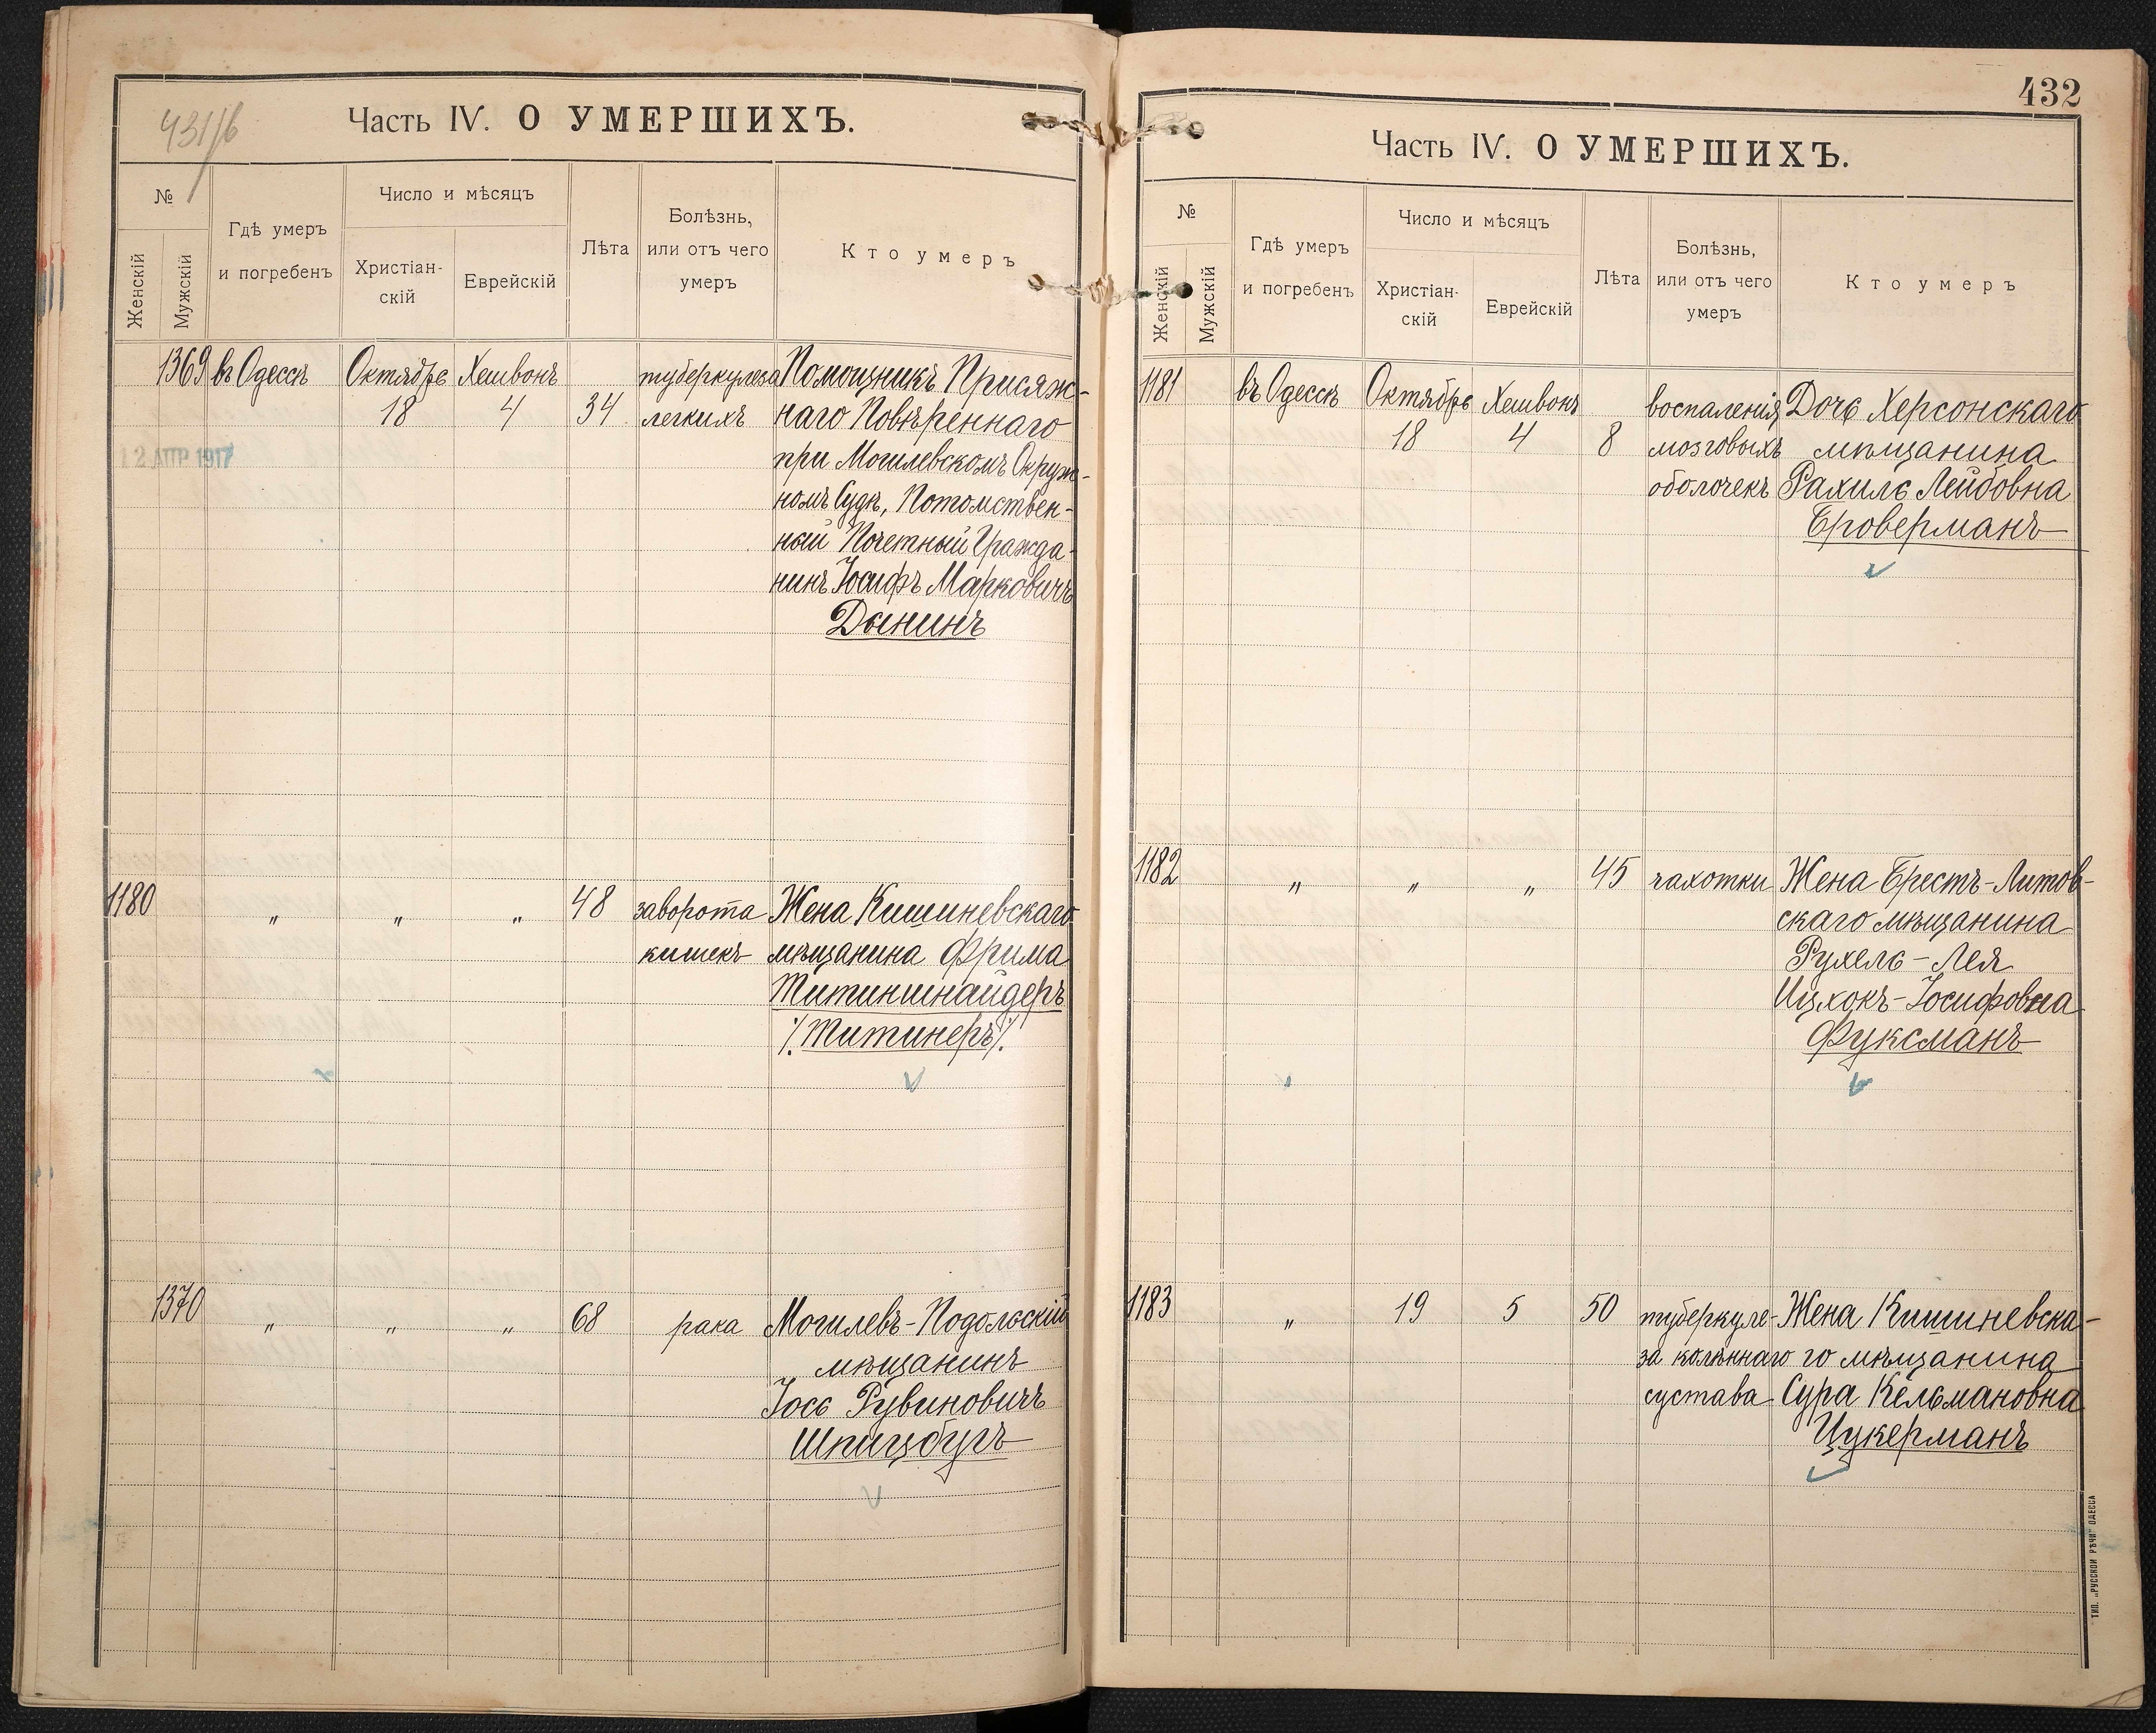 431/б
Часть IV. О УМЕРШИХЪ.
№
Женскій
Мужскій
Гдѣ умеръ
и погребенъ
Число и мѣсяцъ
Христіан-
скій
Еврейскій
Лѣта
Болѣзнь,
или отъ чего
умеръ
Кто умеръ
1369 въ Одессѣ Октябрь Хешвонъ туберкулеза Помощникъ Присяж-
18 4 34 легкихъ наго Повѣреннаго
12 АПР 1917 при Могилевскомъ Окруж-
номъ Судѣ, Потомствен-
ный Почетный Гражда-
нинъ Іосифъ Марковичъ
Дынинъ
1180 " " " 48 заворота Жена Кишиневскаго
кишекъ мѣщанина Фрима
Титиншнайдеръ
/.Титинеръ/.
1370 " " " 68 рака Могилевъ-Подольскій
мѣщанинъ
Іось Рувиновичъ
Шпицбугъ
432
Часть IV. О УМЕРШИХЪ.
№
Женскій
Мужскій
Гдѣ умеръ
и погребенъ
Число и мѣсяцъ
Христіан-
скій
Еврейскій
Лѣта
Болѣзнь,
или отъ чего
умеръ
Кто умеръ
1181 въ Одессѣ Октябрь Хешвонъ воспаленія Дочь Херсонскаго
18 4 8 мозговыхъ мѣщанина
оболочекъ Рахиль Лейбовна
Броверманъ
1182 " " " 45 чахотки Жена Брестъ-Литов-
скаго мѣщанина
Рухель-Лея
Ицхокъ-Іосифовна
Фуксманъ
1183 " 19 5 50 туберкуле- Жена Кишиневска-
за колѣннаго го мѣщанина
сустава Сура Кельмановна
Цукерманъ
ТИП. „РУССКОЙ РѢЧИ“ ОДЕССА